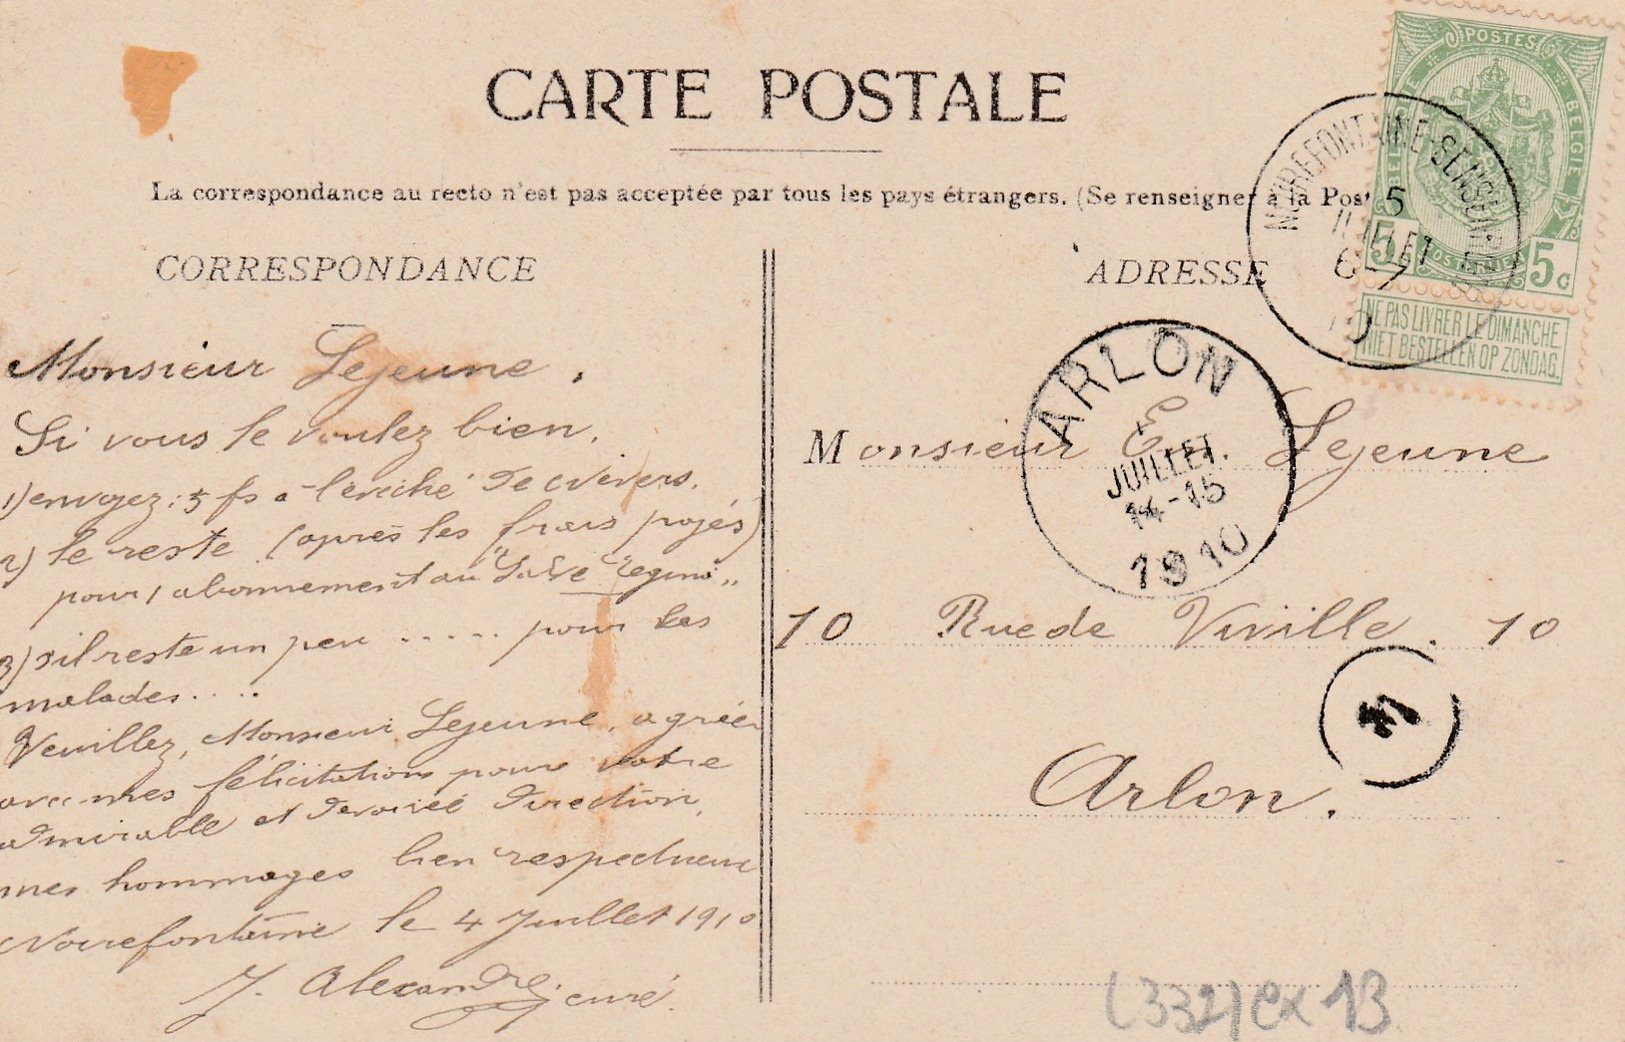 CARTE POSTALE
La correspondance au recto n'est pas acceptée par tous les pays étrangers. (Se renseigner à la Post
CORRESPONDANCE
Monsieur Lejeune,
Si vous le voulez bien,
1) envoyez: 5 fs à l'évêché de
2) le reste (après les frais payés)
pour 1 abonnement au "Salve Regina"
3) s'il reste un peu ..... pour les
malades....
Veuillez, Monsieur Lejeune, agréer
avec mes félicitations pour votre
admirable et dévouée direction,
mes hommages bien respectueux
Noirefontaine le 4 Juillet 1910
J. Alexandre, curé.
ADRESSE
Monsieur Em Lejeune
10 Rue de Viville. 10
Arlon.
POSTES
BELGIE
5 5c
NE PAS LIVRER LE DIMANCHE.
NIET BESTELLEN OP ZONDAG.
NOIREFONTAINE-SENSENRUTH
5
JUILLET
6-7
10
ARLON
JUILLET.
14-15
1910
(332) ex 13